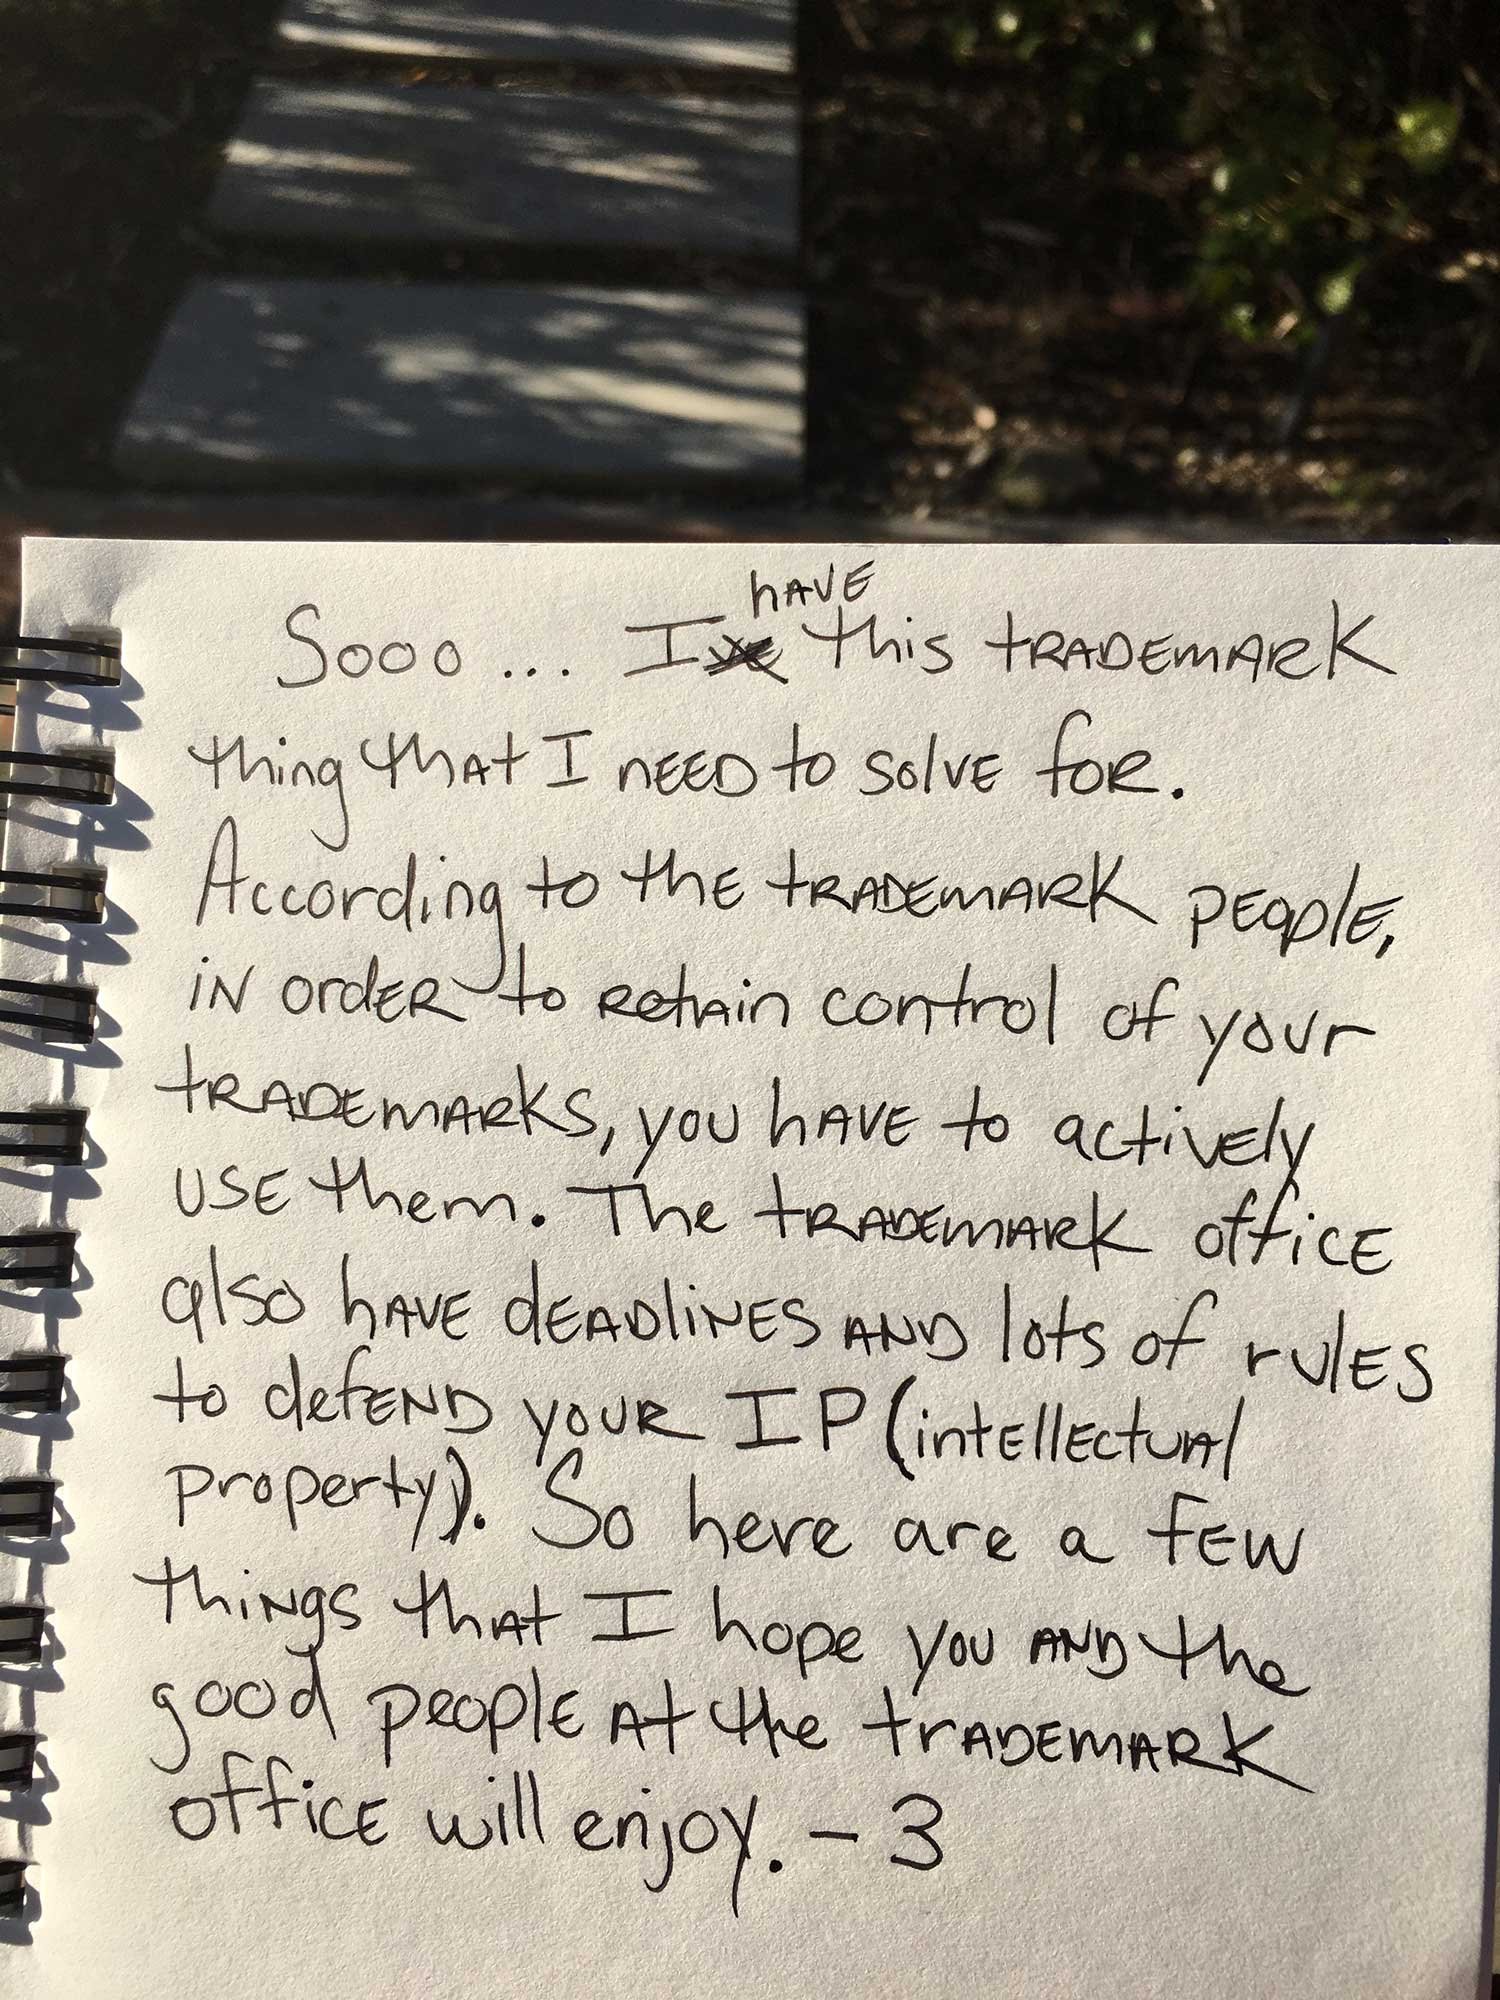 Sooo... I have this trademark
thing that I need to solve for.
According to the trademark people,
in order to retain control of your
trademarks, you have to actively
use them. The trademark office
also have deadlines and lots of rules
to defend your IP (intellectual
property). So here are a few
things that I hope you and the
good people at the trademark
office will enjoy. - 3